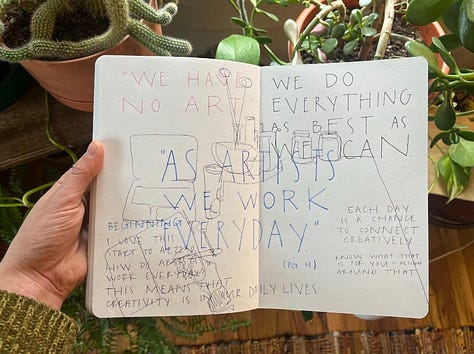 "WE HAVE
NO ART
WE DO
EVERYTHING
AS BEST AS
WE CAN.
"AS ARTISTS
WE WORK
EVERYDAY."
(PG. 4)
BEGINNING
I LOVE THIS
START TO
HOW DO ARTISTS
WORK EVERYDAY
THIS MEANS THAT
CREATIVITY IS IN OUR DAILY LIVES
EACH DAY
IS A CHANCE
TO CONNECT
CREATIVELY
KNOW WHAT THAT
IS FOR YOU
AROUND THAT